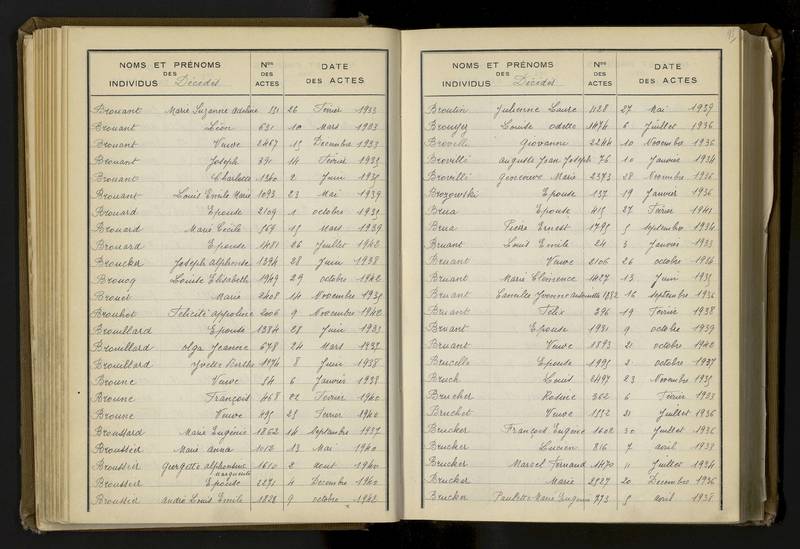 NOMS ET PRÉNOMS DES INDIVIDUS Décédés Nos DES ACTES DATE DES ACTES
Brouant Marie Suzanne Adeline 131 26 Février 1933
Brouant Léon 631 10 Mars 1933
Brouant Veuve 2467 15 Décembre 1933
Brouant Joseph 391 14 Février 1935
Brouant Charlotte 1340 2 Juin 1935
Brouant Louis Emile Marie 1093 23 Mai 1939
Brouard Epouse 2109 1 octobre 1935
Brouard Marie Cécile 569 15 Mars 1939
Brouard Epouse 1481 26 Juillet 1942
Broucker Joseph Alphonse 1394 28 Juin 1938
Broucq Louise Elisabeth 1949 29 octobre 1942
Brouet Marie 2408 14 Novembre 1935
Brouhot Félicité appoline 2006 9 Novembre 1942
Brouillard Epouse 1384 28 Juin 1933
Brouillard olga Jeanne 678 24 Mars 1937
Brouillard Yvette Berthe 1174 8 Juin 1938
Broune Veuve 54 6 Janvier 1938
Broune François 468 22 Février 1940
Broune Veuve 495 25 Février 1940
Broussard Marie Eugénie 1862 14 Septembre 1937
Broussier Marie anna 1012 13 Mai 1940
Broussier Georgette alphonsine Marguerite 1610 2 aout 1940
Broussier Epouse 2271 4 Décembre 1940
Broussier andré Louis Emile 1828 9 octobre 1942
NOMS ET PRÉNOMS DES INDIVIDUS Décédés Nos DES ACTES DATE DES ACTES
Broutin Julienne Laure 1128 27 Mai 1939
Louise odette 1474 6 Juillet 1936
Brovelli Giovanni 2244 10 Novembre 1936
Brovelli auguste Jean Joseph 76 10 Janvier 1934
Brovelli Geneviève Marie 2373 28 Novembre 1936
Brozowski Epouse 137 19 Janvier 1936
Brua Epouse 415 27 Février 1941
Brua Pierre Ernest 1795 5 septembre 1934
Bruant Louis Emile 24 3 Janvier 1933
Bruant Veuve 2106 26 octobre 1934
Bruant Marie Clémence 1427 13 Juin 1935
Bruant Camille Yvonne antoinette 1882 16 septembre 1936
Bruant Félix 396 19 Février 1938
Bruant Epouse 1931 9 octobre 1939
Bruant Veuve 1893 21 octobre 1942
Brucelle Epouse 1995 2 octobre 1937
Bruch Louis 2497 23 Novembre 1935
Brucher Rosine 362 6 Février 1933
Bruchet Veuve 1552 21 Juillet 1936
Brucker François Eugène 1602 30 Juillet 1936
Brucker Lucien 816 7 avril 1938
Brucker Marcel Fernand 1470 11 Juillet 1934
Brucker Marie 2527 20 Décembre 1936
Brucker Paulette Marie Eugénie 773 5 avril 1938